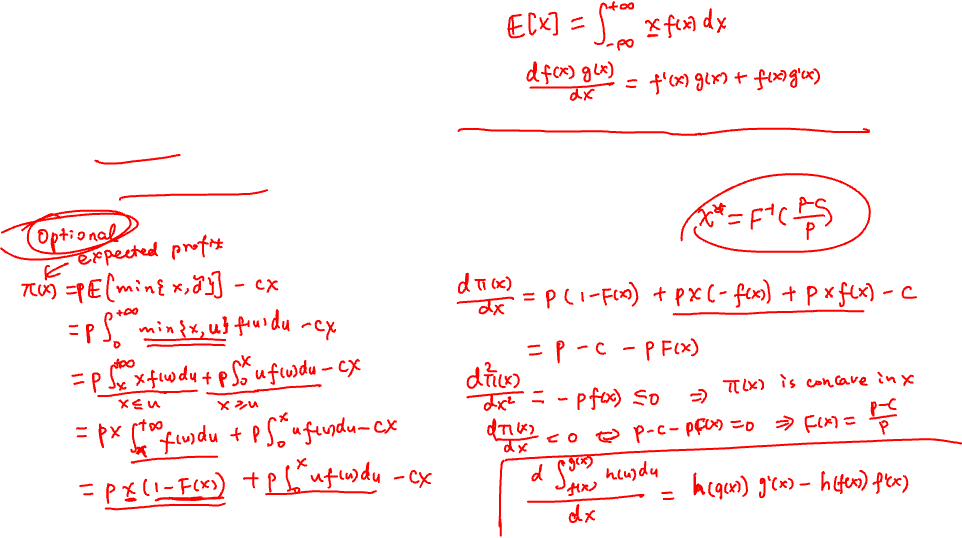 E[X] = ∫_{-∞}^{+∞} x f(x) dx
d f(x) g(x) / dx = f'(x) g(x) + f(x) g'(x)
x* = F⁻¹((p-c)/p)
Optional
expected profit
π(x) = pE[min{x, d̃}] - cx
= p ∫_0^{+∞} min{x, u} f(u) du - cx
= p ∫_x^{+∞} x f(u) du + p ∫_0^x u f(u) du - cx
x ≤ u x ≥ u
= px ∫_x^{+∞} f(u) du + p ∫_0^x u f(u) du - cx
= p x (1 - F(x)) + p ∫_0^x u f(u) du - cx
dπ(x)/dx = p(1 - F(x)) + px(-f(x)) + p x f(x) - c
= p - c - p F(x)
d²π(x)/dx² = - p f(x) ≤ 0 ⇒ π(x) is concave in x
dπ(x)/dx = 0 ⇔ p - c - pF(x) = 0 ⇒ F(x) = (p-c)/p
d ∫_{f(x)}^{g(x)} h(u) du / dx = h(g(x)) g'(x) - h(f(x)) f'(x)